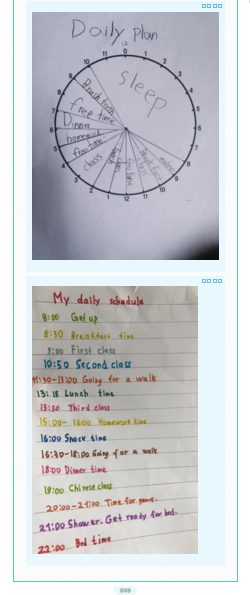 Daily plan
12
0
11
1
10
2
9
3
8
4
7
5
6
6
5
7
4
8
3
9
2
10
1
11
12
Sleep
Brush teeth
free time
Dinner
homework
free time
class
Lunch
class
My daily schedule
8:00 Get up
8:30 Breakfast time
9:00 First class
10:50 Second class
11:30-13:00 Going for a walk
13:15 Lunch time
13:50 Third class
15:00-1600 Homework time
16:00 Snack time
16:30-18:00 Going for a walk
18:00 Dinner time
19:00 Chinese class
20:00-21:00 Time for games.
21:00 Shower. Get ready for bed.
22:00 Bed time